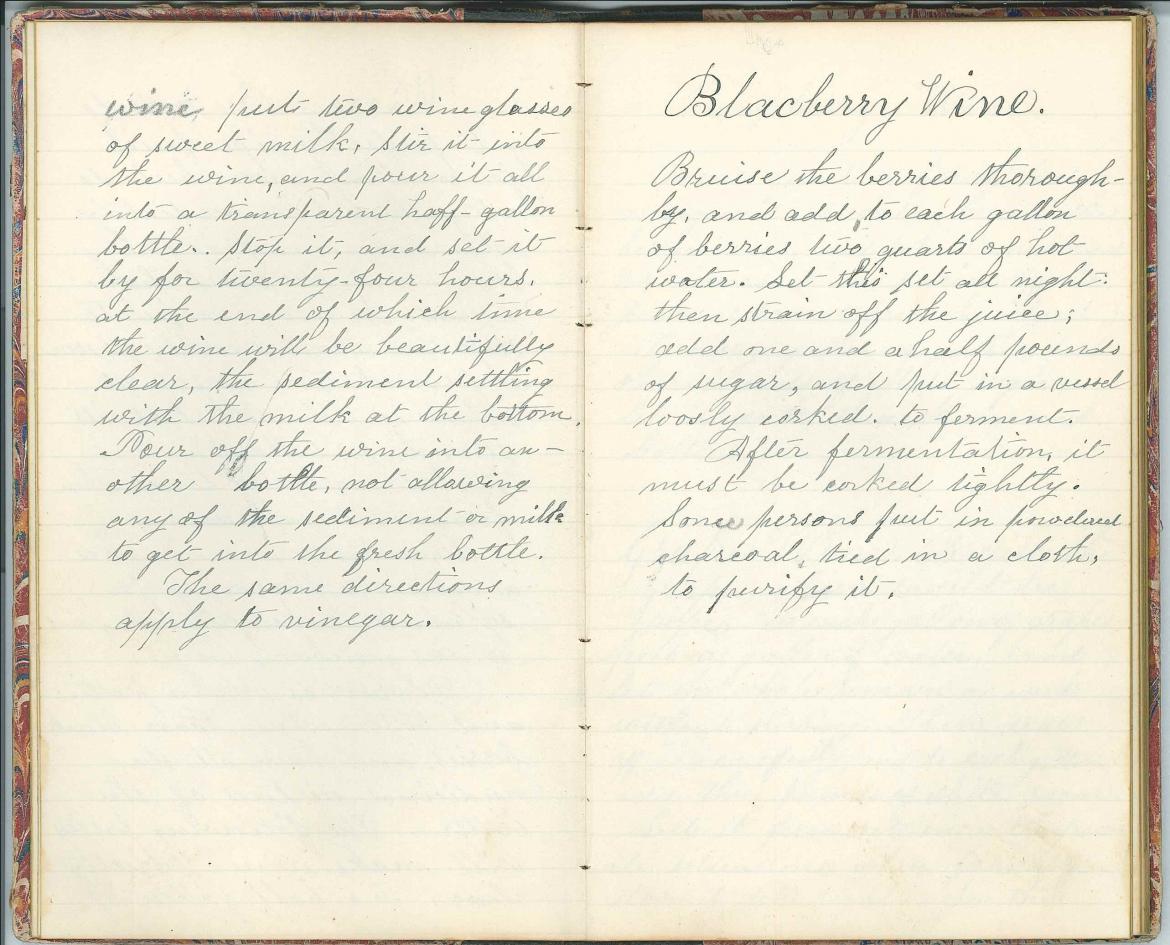 wine, put two wineglasses
of sweet milk, stir it into
the wine, and pour it all
into a transparent half-gallon
bottle. Stop it, and set it
by for twenty-four hours.
at the end of which time
the wine will be beautifully
clear, the sediment settling
with the milk at the bottom.
Pour off the wine into an-
other bottle, not allowing
any of the sediment or milk
to get into the fresh bottle.
The same directions
apply to vinegar.
Blacberry Wine.
Bruise the berries thorough-
ly, and add, to each gallon
of berries two quarts of hot
water. Let this set all night:
then strain off the juice;
add one and a half pounds
of sugar, and put in a vessel
loosly corked. to ferment.
After fermentation, it
must be corked tightly.
Some persons put in powdered
charcoal, tied in a cloth,
to purify it.